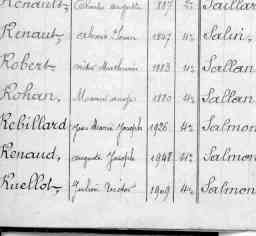 Renault, Charles Auguste 1887 2e Saillar
Renaut, 1847 4e Salin,
Robert, Mathurin 1883 4e Sallan
Rohan, 1880 4e Sallan
Rebillard Jean Marie Joseph 1926 4e Salmon
Renaud, Auguste Joseph 1948 4e Salmon
Ruellot, Julien Victor 1909 4e Salmon